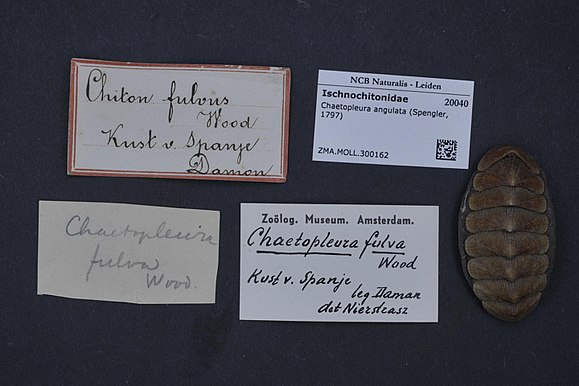 Chiton fulvus
Wood
Kust v. Spanje
Damon
NCB Naturalis - Leiden
Ischnochitonidae 20040
Chaetopleura angulata (Spengler,
1797)
ZMA.MOLL.300162
Chaetopleura
fulva
Wood.
Zoölog. Museum. Amsterdam.
Chaetopleura fulva
Wood
Kust v. Spanje
leg Daman
det Nierstrasz